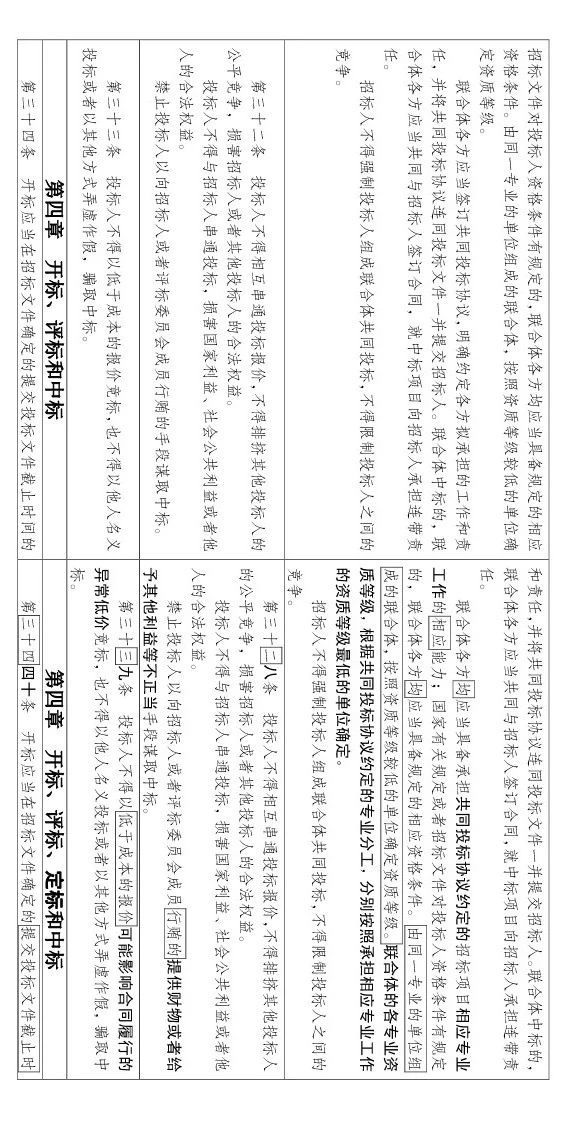 招标文件对投标人资格条件有规定的，联合体各方均应当具备规定的相应
资格条件。由同一专业的单位组成的联合体，按照资质等级较低的单位确
定资质等级。
联合体各方应当签订共同投标协议，明确约定各方拟承担的工作和责
任，并将共同投标协议连同投标文件一并提交招标人。联合体中标的，联
合体各方应当共同与招标人签订合同，就中标项目向招标人承担连带责
任。
招标人不得强制投标人组成联合体共同投标，不得限制投标人之间的
竞争。
第三十二条　投标人不得相互串通投标报价，不得排挤其他投标人的
公平竞争，损害招标人或者其他投标人的合法权益。
投标人不得与招标人串通投标，损害国家利益、社会公共利益或者他
人的合法权益。
禁止投标人以向招标人或者评标委员会成员行贿的手段谋取中标。
第三十三条　投标人不得以低于成本的报价竞标，也不得以他人名义
投标或者以其他方式弄虚作假，骗取中标。
第四章　开标、评标和中标
第三十四条　开标应当在招标文件确定的提交投标文件截止时间的
和责任，并将共同投标协议连同投标文件一并提交招标人。联合体中标的，
联合体各方应当共同与招标人签订合同，就中标项目向招标人承担连带责
任。
联合体各方均应当具备承担共同投标协议约定的招标项目相应专业
工作的相应能力；国家有关规定或者招标文件对投标人资格条件有规定
的，联合体各方均应当具备规定的相应资格条件。由同一专业的单位组
成的联合体，按照资质等级较低的单位确定资质等级。联合体的各专业资
质等级，根据共同投标协议约定的专业分工，分别按照承担相应专业工作
的资质等级最低的单位确定。
招标人不得强制投标人组成联合体共同投标，不得限制投标人之间的
竞争。
第三十二八条　投标人不得相互串通投标报价，不得排挤其他投标人
的公平竞争，损害招标人或者其他投标人的合法权益。
投标人不得与招标人串通投标，损害国家利益、社会公共利益或者他
人的合法权益。
禁止投标人以向招标人或者评标委员会成员行贿的提供财物或者给
予其他利益等不正当手段谋取中标。
第三十三九条　投标人不得以低于成本的报价可能影响合同履行的
异常低价竞标，也不得以他人名义投标或者以其他方式弄虚作假，骗取中
标。
第四章　开标、评标、定标和中标
第三十四四十条　开标应当在招标文件确定的提交投标文件截止时